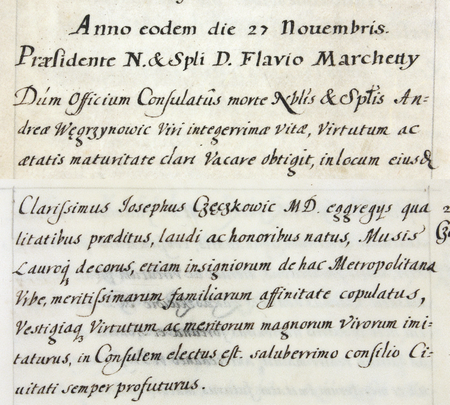 Anno eodem die 27 Novembris.
Præsidente N. & Spli D. Flavio Marchetty
Dúm Officium Consulatûs morte Nblis & Spltis An-
dreæ Węgrzynowic Viri integerrimæ vitæ, Virtutum ac
ætatis maturitate clari Vacare obtigit, in locum eiusd
Clarissimus Iosephus Częczkowic MD. eggregys qua
litatibus præditus, laudi ac honoribus natus, Musis
Lauroq decorus, etiam insigniorum de hac Metropolitana
Vrbe, meritissimarum familiarum affinitate copulatus,
Vestigiaq Virtutum ac meritorum magnorum Virorum imi-
taturus, in Consulem electus est. saluberrimo consilio Ci-
vitati semper profuturus.